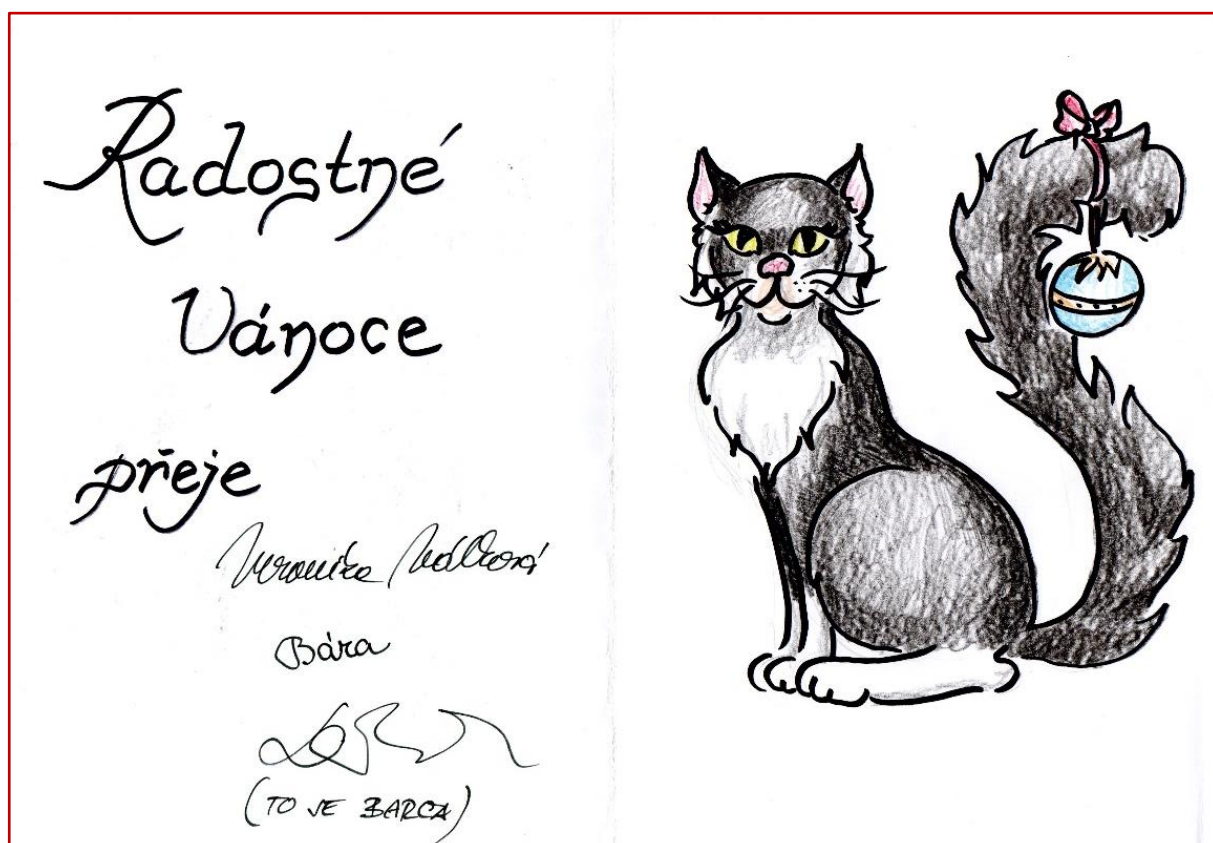 Radostné
Vánoce
přeje
Veronika Válková
Bára
(TO JE BARCA)